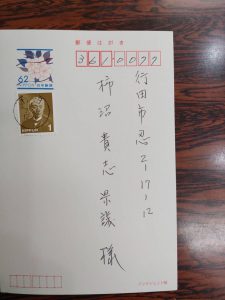 郵便はがき
3610077
行田市忍2-17-12
柿沼貴志県議 様
62
日本郵便
NIPPON
1
NIPPON